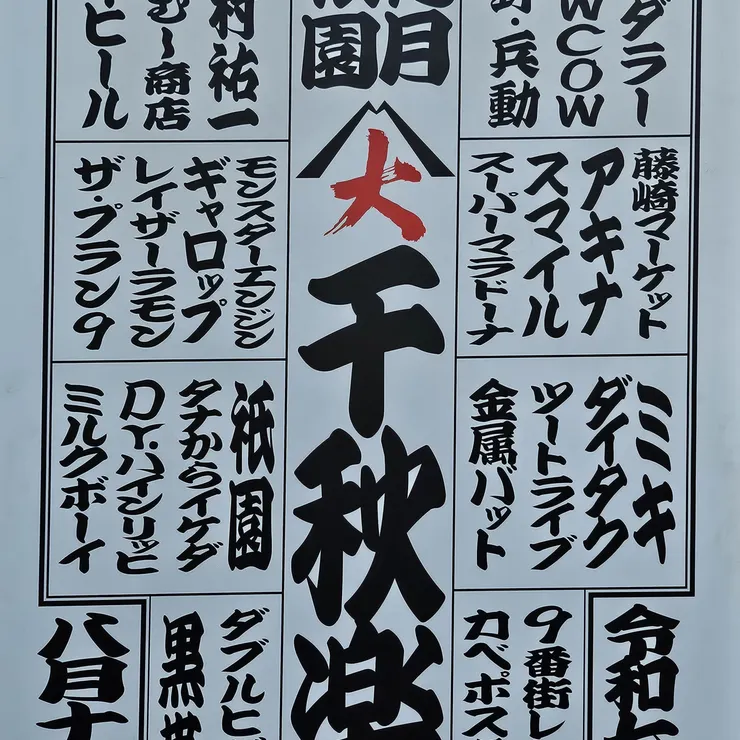 ダラー
WCOW
・兵動
藤崎マーケット
アキナ
スマイル
スーパーマラドーナ
ミキ
ダイタク
ツートライブ
金属バット
令和七
9番街レ
カベポス
月
園
大
千秋楽
村祐一
む〜商店
・ヒール
モンスターエンジン
ギャロップ
レイザーラモン
ザ・プラン9
祇園
タナからイケダ
D.Y.ハインリッヒ
ミルクボーイ
ダブルヒ
黒
八月十